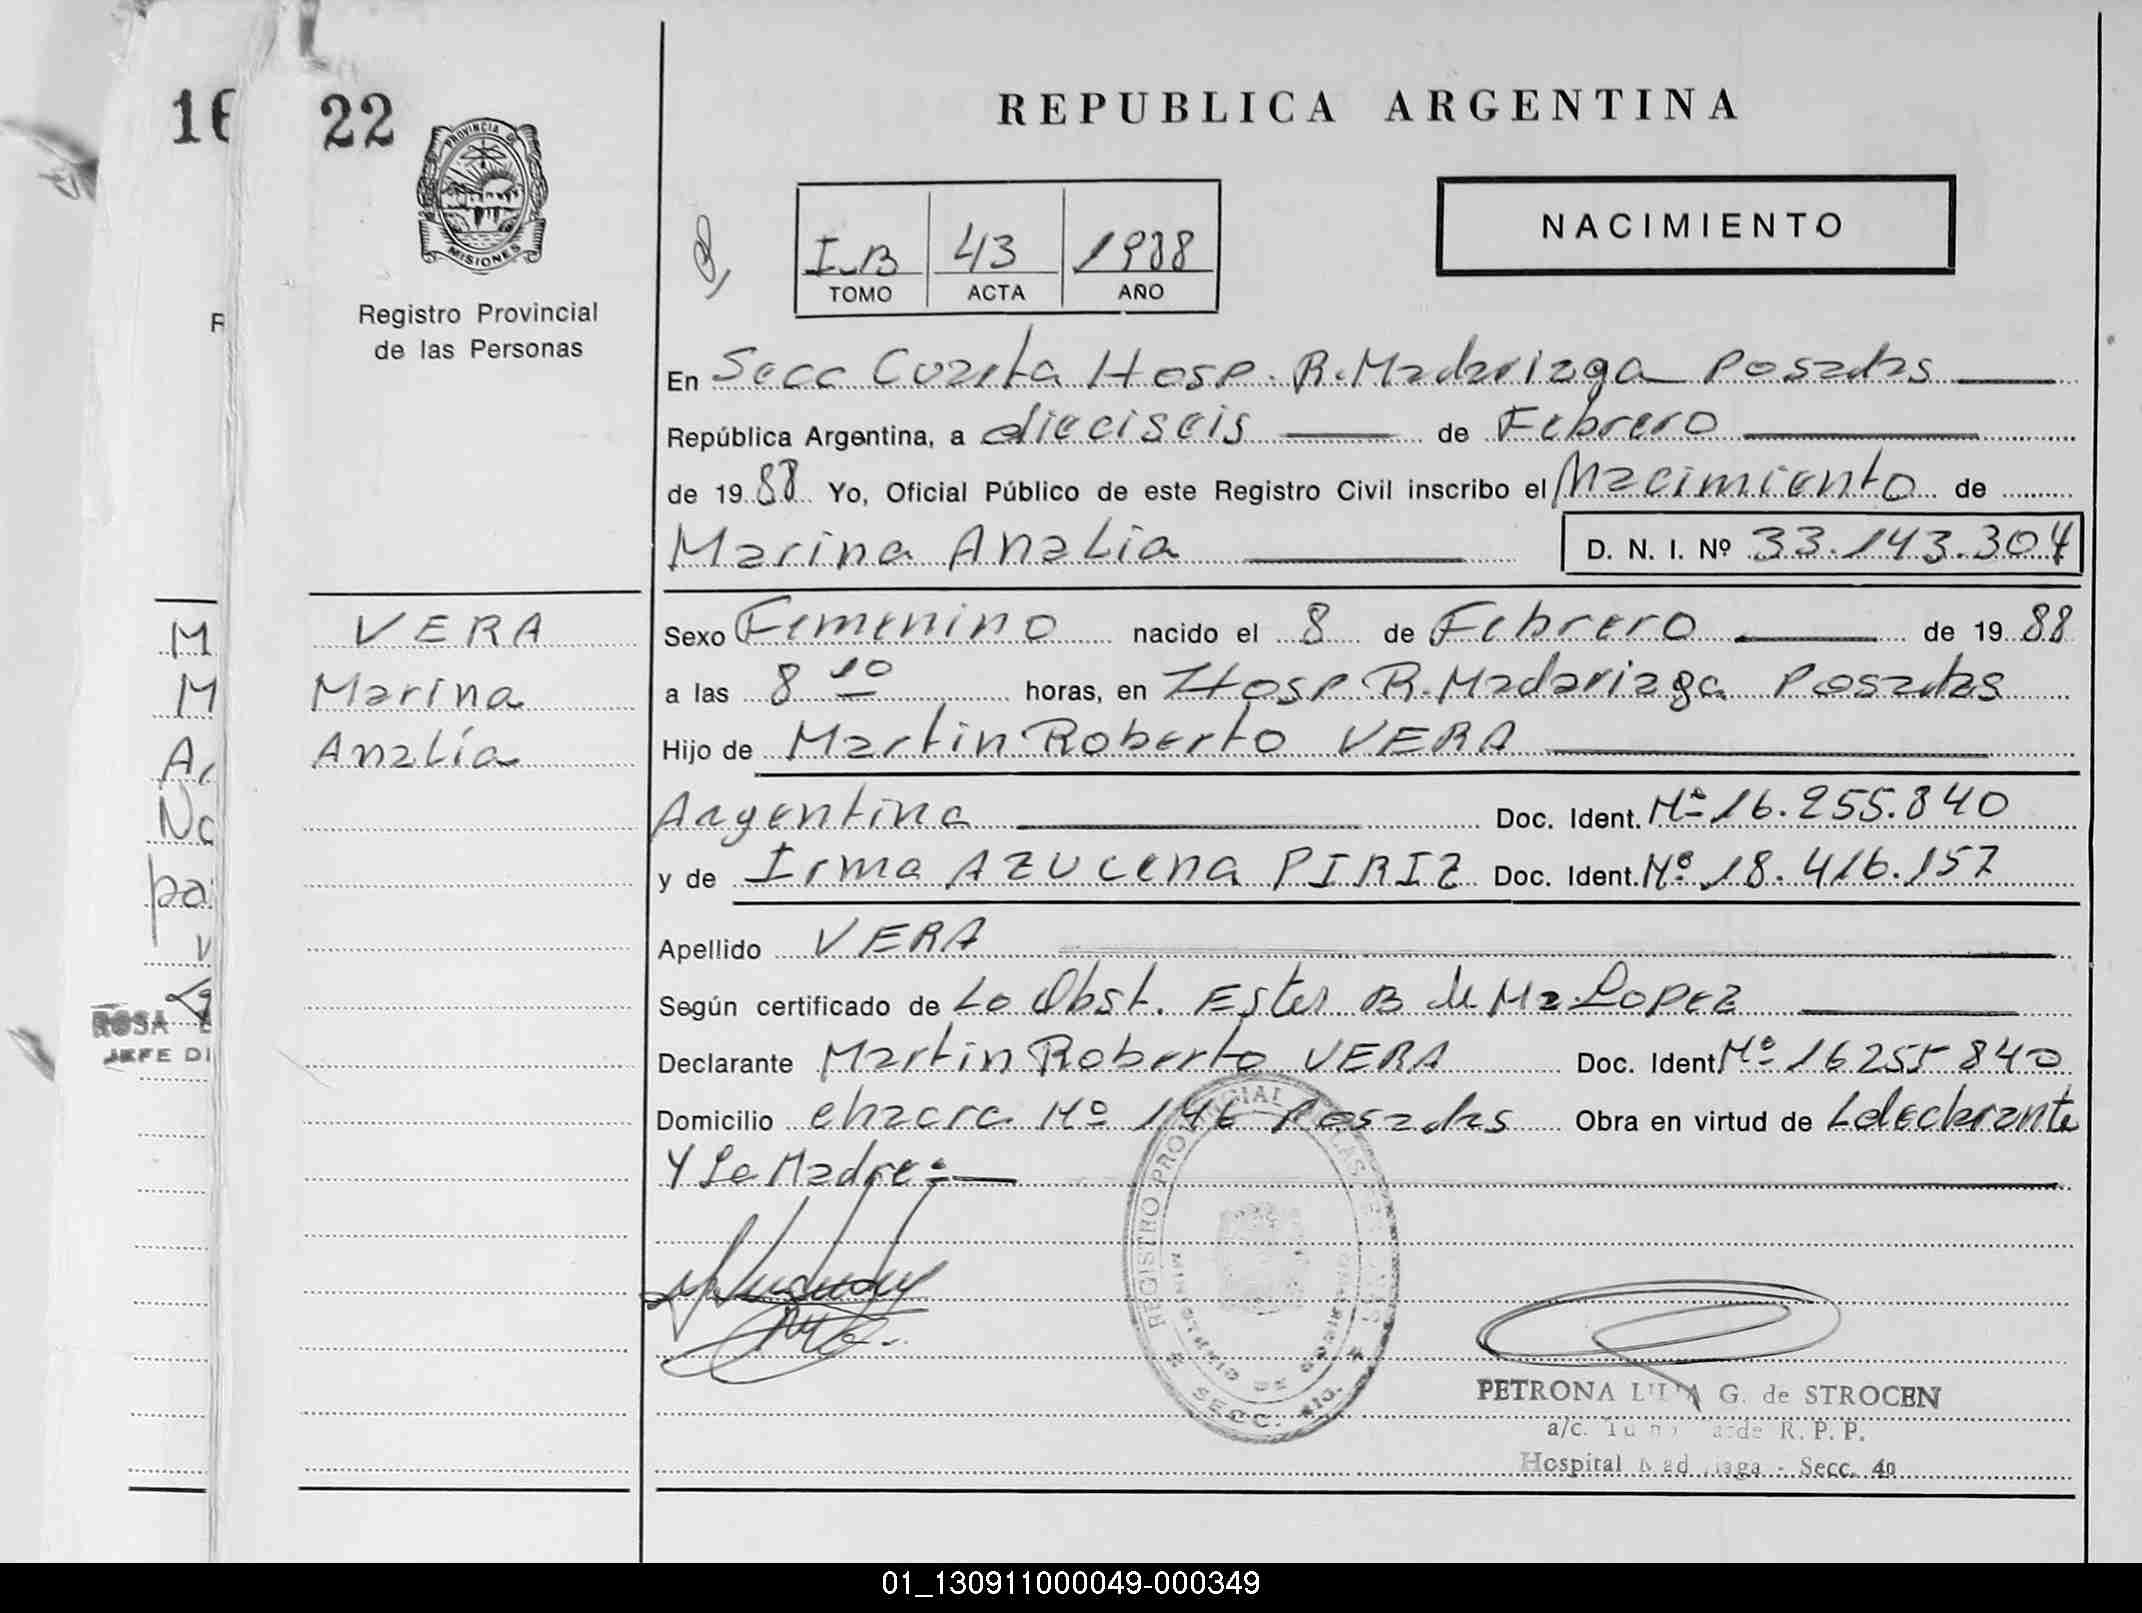 16
22
PROVINCIA D
MISIONES
Registro Provincial
de las Personas
REPUBLICA ARGENTINA
NACIMIENTO
I-B 43 1988
TOMO ACTA AÑO
En Secc Cuarta Hosp. R. Madariaga Posadas
República Argentina, a dieciseis de Febrero
de 1988 Yo, Oficial Público de este Registro Civil inscribo el Nacimiento de
Marina Analia D. N. I. Nº 33.143.304
VERA
Marina
Analía
Sexo Femenino nacido el 8 de Febrero de 1988
a las 8 10 horas, en Hosp R. Madariaga Posadas
Hijo de Martin Roberto VERA
Argentina Doc. Ident. Nº 16.255.840
y de Irma AZUCENA PIRIZ Doc. Ident. Nº 18.416.157
Apellido VERA
Según certificado de La Obst. Ester B de Mz. Lopez
Declarante Martin Roberto VERA Doc. Ident Nº 16255840
Domicilio chacra Nº 146 Posadas Obra en virtud de Ldeclarante
Y La Madre:
ROSA
JEFE DI
REGISTRO PRO CIAL LAS
SECC.
PETRONA G. de STROCEN
a/c. R. P. P.
Hospital - Secc. 4a
01_130911000049-000349